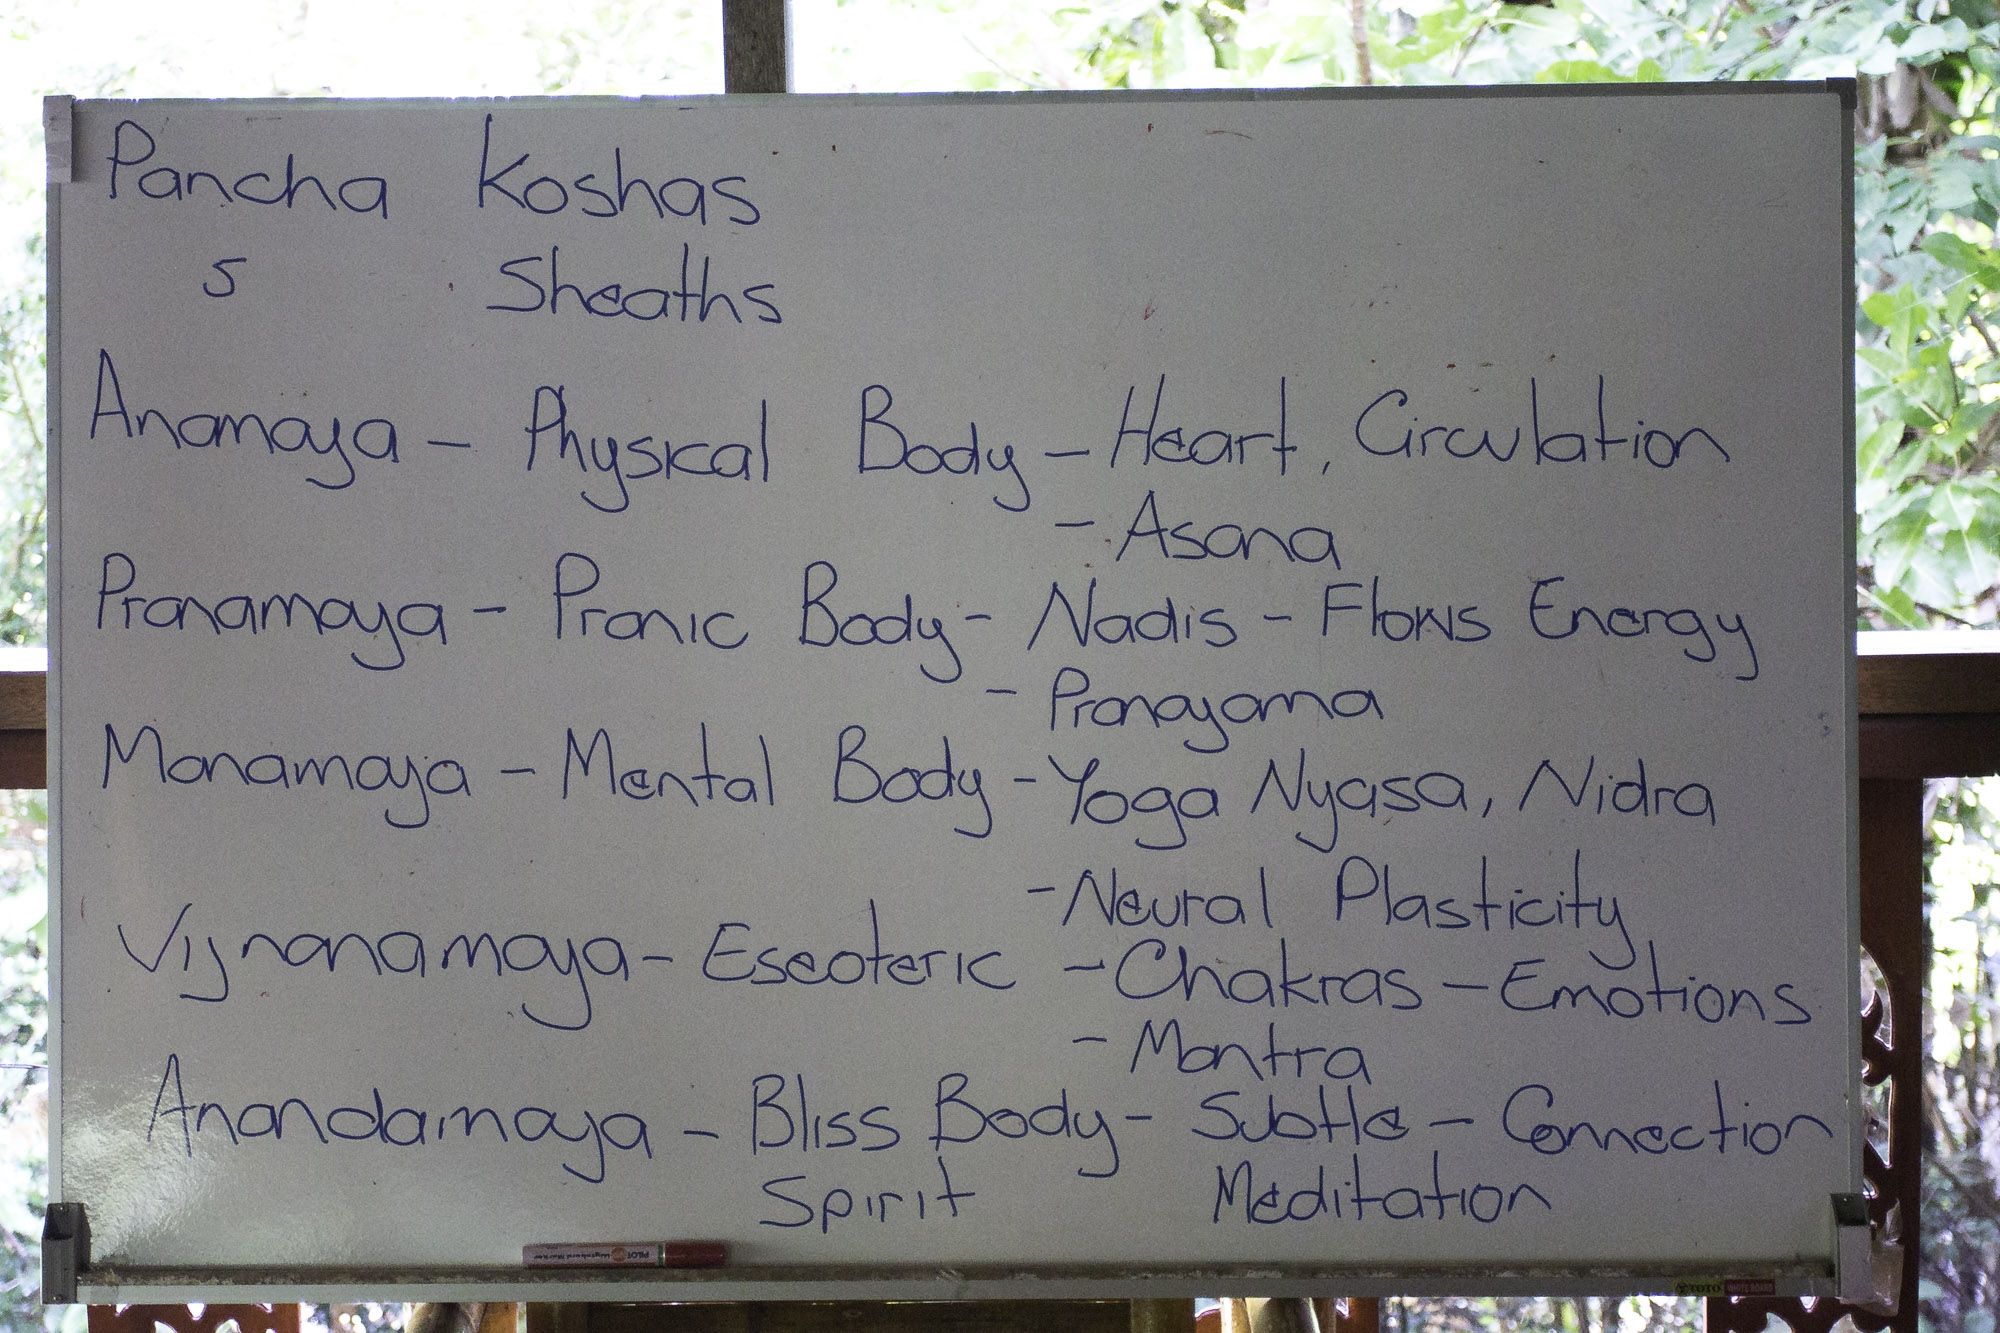 Pancha Koshas
5 Sheaths
Anamaya - Physical Body - Heart, Circulation
- Asana
Pranamaya - Pranic Body - Nadis - Flows Energy
- Pranayama
Manamaya - Mental Body - Yoga Nyasa, Nidra
- Neural Plasticity
Vijnanamaya - Eseoteric - Chakras - Emotions
- Mantra
Anandamaya - Bliss Body - Subtle - Connection
Spirit Meditation
PILOT
TOTO